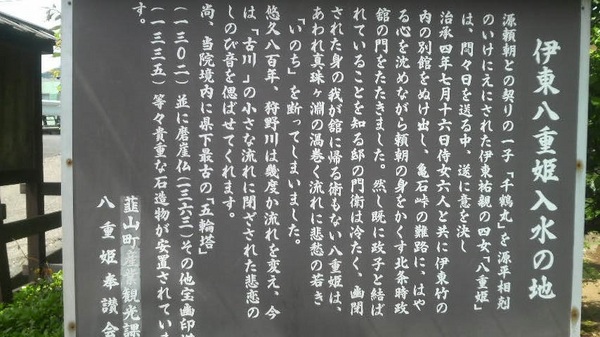 伊東八重姫入水の地
源頼朝との契りの一子「千鶴丸」を源平相剋
のいけにえにされた伊東祐親の四女「八重姫」
は、悶々日を送る中、遂に意を決し
治承四年七月十六日侍女六人と共に伊東竹の
内の別館をぬけ出し、亀石峠の難路に、はや
る心を沈めながら頼朝の身をかくす北条時政
館の門をたたきました。然し既に政子と結ば
れていることを知る邸の門衛は冷たく、幽閉
された身の我が館に帰る術もない八重姫は、
あわれ真珠ヶ淵の渦巻く流れに悲愁の若き
「いのち」を断ってしまいました。
悠久八百年、狩野川は幾度か流れを変え、今
は「古川」の小さな流れに閉ざされた悲恋の
しのび音を偲ばせてくれます。
尚、当院境内に県下最古の「五輪塔」
(一三〇二)並に磨崖仏(一三六三)その他宝篋印塔
(一三三五)等々貴重な石造物が安置されていま
す。
韮山町産業観光課
八重姫奉讃会